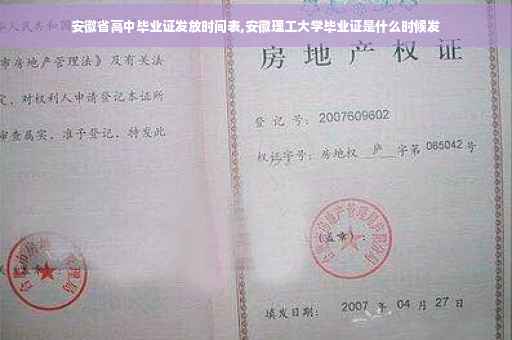 安徽省高中毕业证发放时间表,安徽理工大学毕业证是什么时候发
华人民共和国
市房地产管理法》及有关法
定，对权利人申请登记本证所
审查属实，准予登记，特发此
房地产权证
登记号：2007609602
权证字号：房地权 庐 字第 085042 号
（盖章）：
填发日期：2007 年 04 月 27 日